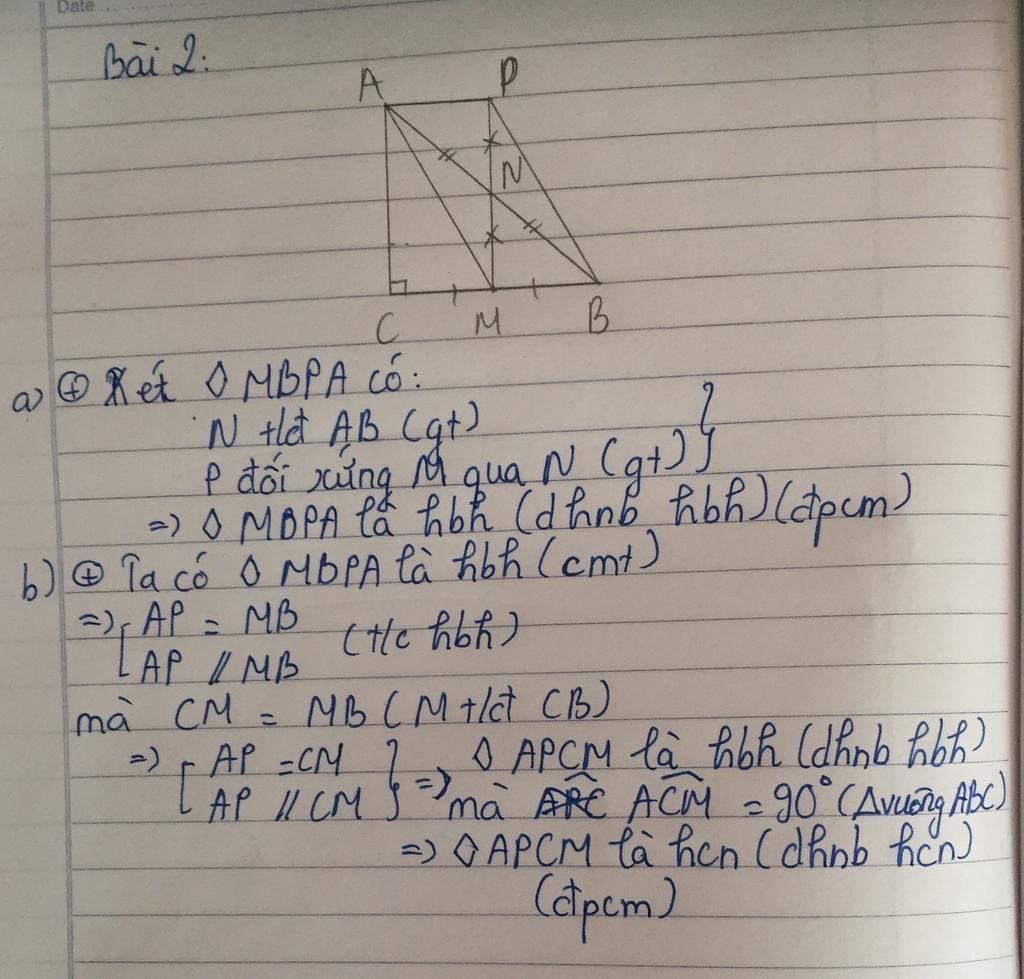 Date
Bài 2:
A P
N
C M B
a) ⊕ Xét ◊ MBPA có:
N tđ AB (gt)
P đối xứng M qua N (gt) }
=> ◊ MBPA là hbh (dhnb hbh) (đpcm)
b) ⊕ Ta có ◊ MBPA là hbh (cmt)
=> [ AP = MB
AP // MB (t/c hbh)
mà CM = MB (M tđ CB)
=> [ AP = CM } => ◊ APCM là hbh (dhnb hbh)
AP // CM mà ACM = 90° (Δvuông ABC)
=> ◊ APCM là hcn (dhnb hcn)
(đpcm)